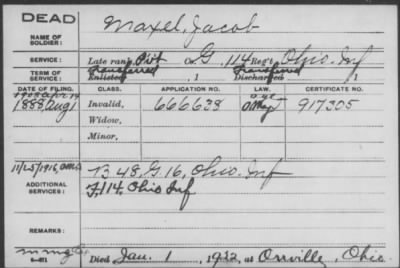 DEAD
Maxel, Jacob
NAME OF SOLDIER:
SERVICE: Late rank, Pvt Co. G, 114 Reg't Ohio Inf
TERM OF SERVICE: Enlisted Transferred , 1 Discharged Transferred , 1
DATE OF FILING. CLASS. APPLICATION NO. LAW. CERTIFICATE NO.
1888, Aug 1 Invalid, 666638 917305
Widow,
Minor,
ADDITIONAL SERVICES: F 48, G. 16, Ohio Inf
F 114, Ohio Inf
REMARKS:
Died Jan. 1, 1922, at Orrville, Ohio.